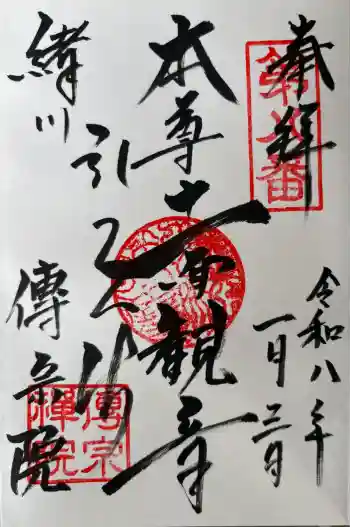 奉拝
第八番
令和八年
一月三日
本尊十一面観音
緒川
引
傳宗院
傳宗
禪院